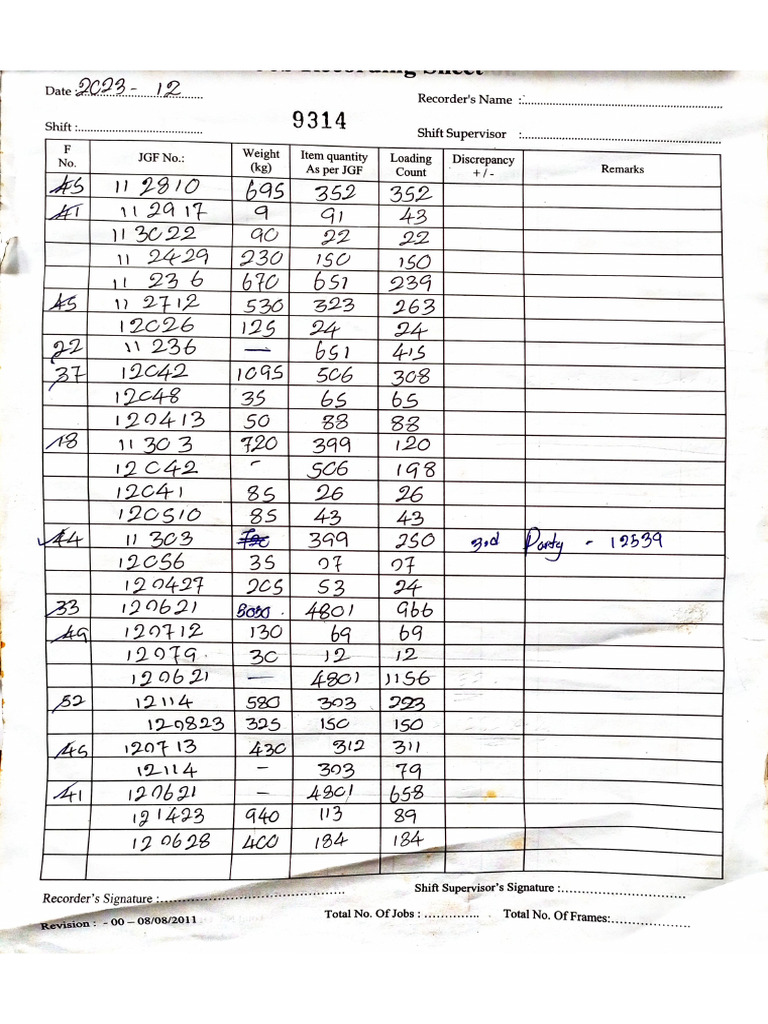 Recording Sheet
Date : 2023 - 12
Recorder's Name :
9314
Shift :
Shift Supervisor :
F No. JGF No.: Weight (kg) Item quantity As per JGF Loading Count Discrepancy + / - Remarks
45 11 2810 695 352 352
41 11 2917 9 91 43
11 3022 90 22 22
11 2429 230 150 150
11 236 670 651 239
45 11 2712 530 323 263
12026 125 24 24
22 11 236 — 651 415
37 12042 1095 506 308
12048 35 65 65
120413 50 88 88
18 11 303 720 399 120
12042 - 506 198
12041 85 26 26
120510 85 43 43
44 11 303 399 250 3rd Party - 12539
12056 35 07 07
120427 205 53 24
33 120621 8030 . 4801 966
49 120712 130 69 69
12079. 30 12 12
120621 — 4801 1156
52 12114 580 303 223
120823 325 150 150
45 120713 430 312 311
12114 - 303 79
41 120621 - 4801 658
121423 940 113 89
120628 400 184 184
Recorder's Signature :
Shift Supervisor's Signature :
Revision : - 00 – 08/08/2011
Total No. Of Jobs :
Total No. Of Frames: